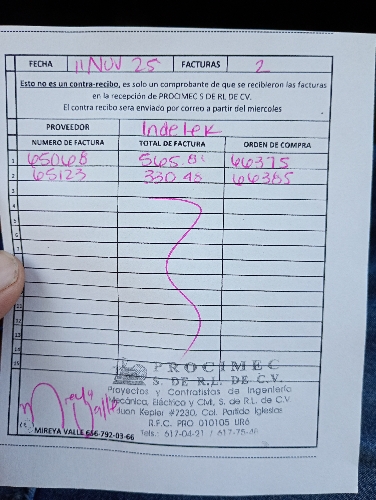 FECHA 11 NOV 25 FACTURAS 2
Esto no es un contra-recibo, es solo un comprobante de que se recibieron las facturas
en la recepción de PROCIMEC S DE RL DE CV.
El contra recibo sera enviado por correo a partir del miercoles
PROVEEDOR Indelek
NUMERO DE FACTURA TOTAL DE FACTURA ORDEN DE COMPRA
1 65068 565.8 66375
2 65123 330.48 66385
3
4
5
6
7
PROCIMEC
S. DE R.L. DE C.V.
Proyectos y Contratistas de Ingeniería
Mecánica, Eléctrica y Civil, S. de R.L. de C.V.
Juan Kepler #7230, Col. Partido Iglesias
R.F.C. PRO 010105 UR6
Tels.: 617-04-21 / 617-75-
Mireya Valle
MIREYA VALLE 656-792-03-66